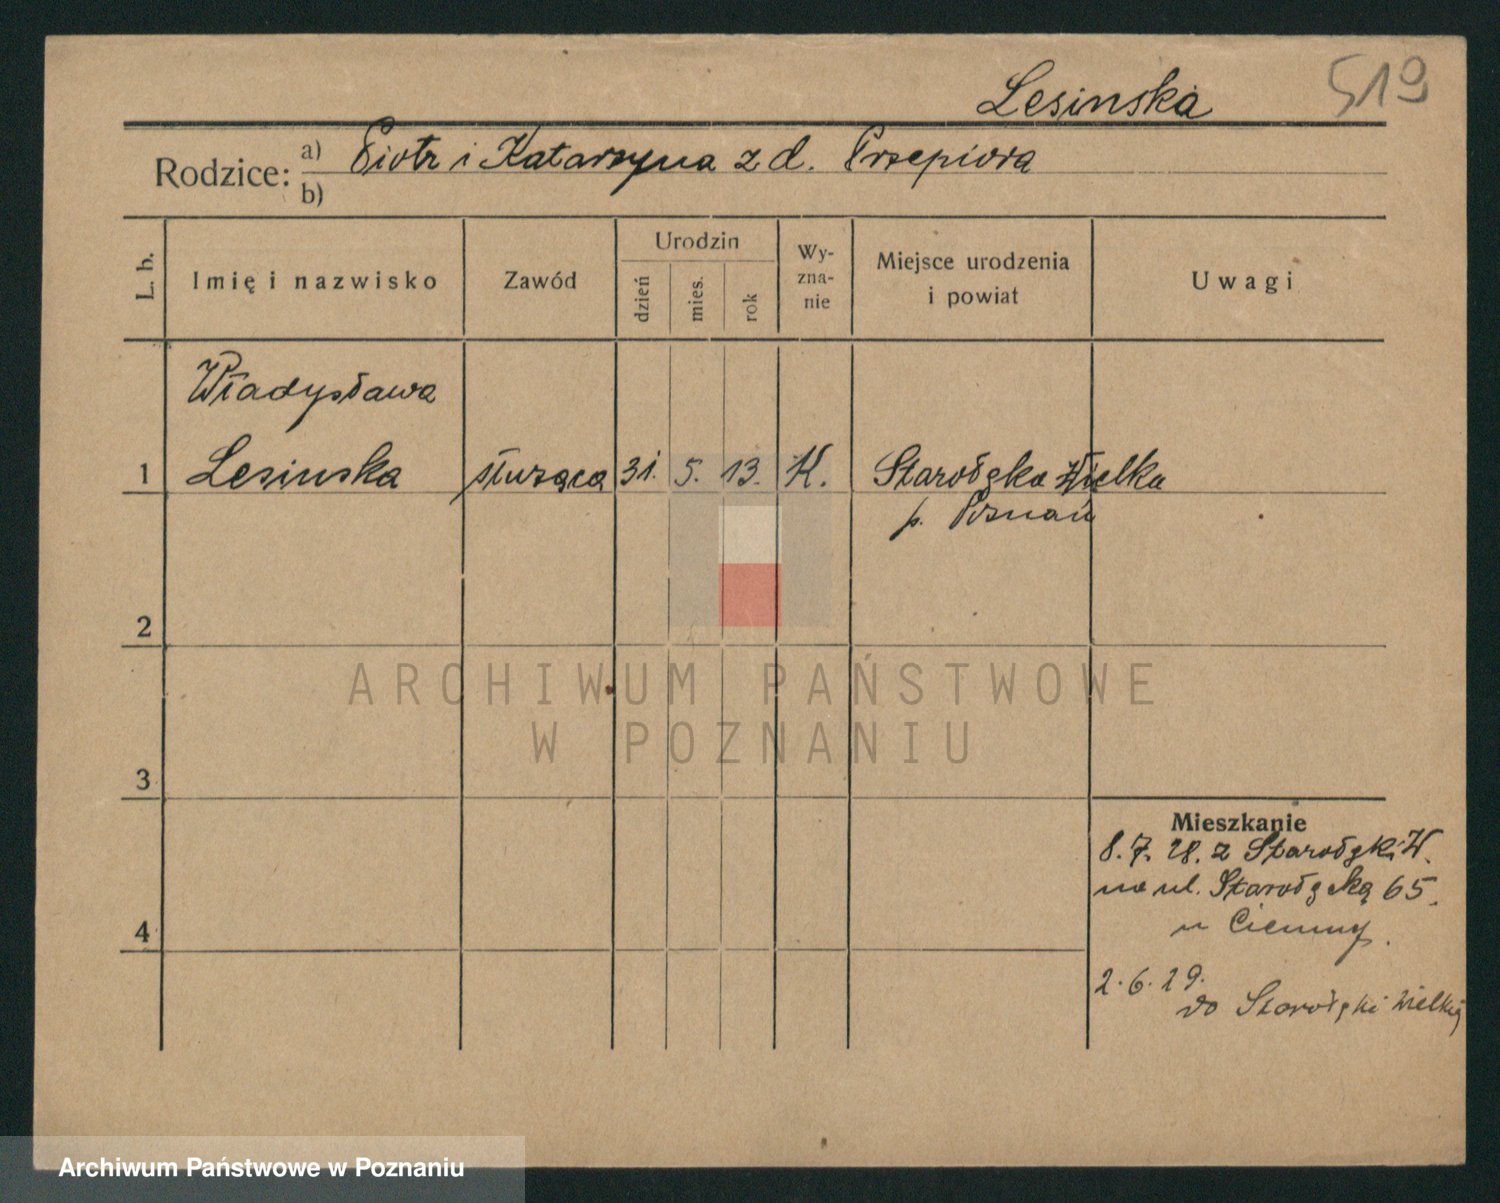 519
Lesinska
Rodzice: a) Piotr i Katarzyna z d. Przepiora
b)
L. b.
Imię i nazwisko
Zawód
Urodzin
dzień
mies.
rok
Wy-
zna-
nie
Miejsce urodzenia
i powiat
Uwagi
Władysława
1 Lesinska służąca 31. 5. 13. K. Starołęka Wielka
p. Poznań
2
3
4
Mieszkanie
8. 7. 28. z Starołęki W.
na ul. Starołęcką 65.
u Ciemny.
2. 6. 29.
do Starołęki Wielkiej
ARCHIWUM PAŃSTWOWE
W POZNANIU
Archiwum Państwowe w Poznaniu